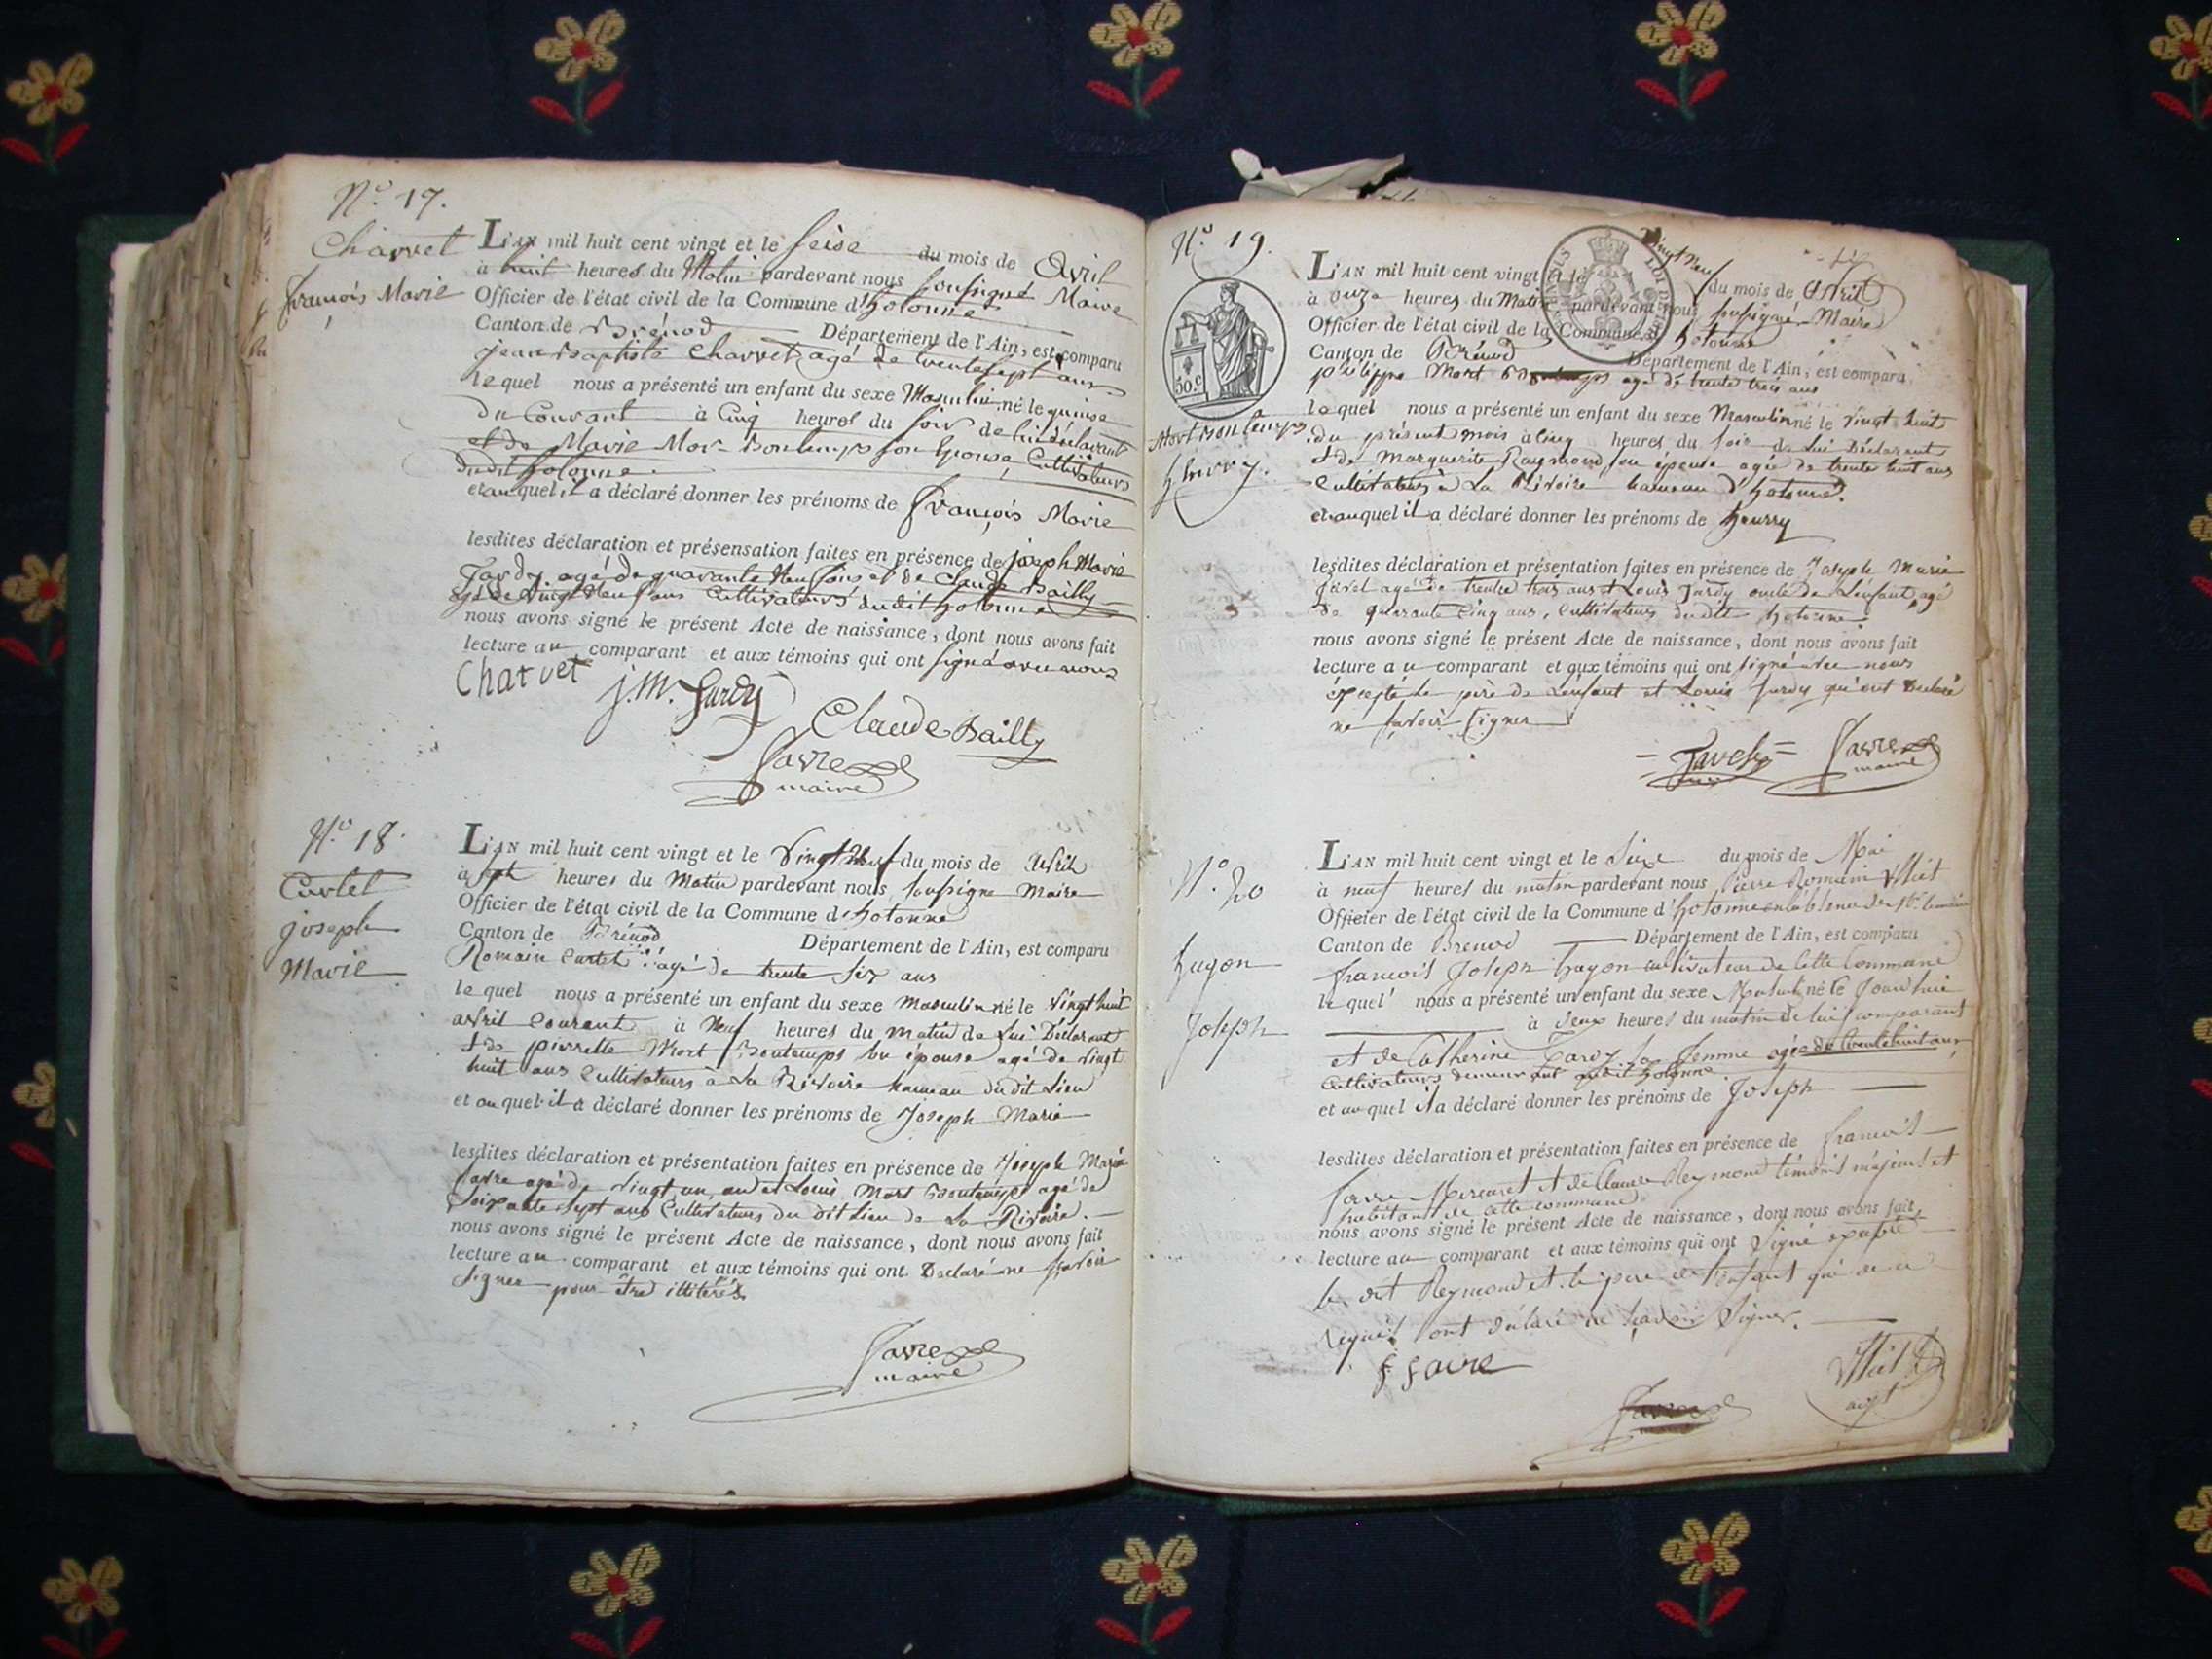 N.º 17.
Charvet
François Marie
L'AN mil huit cent vingt et le seise du mois de Avril
à huit heures du Matin pardevant nous soussigné Maire
Officier de l'état civil de la Commune d'hotonne
Canton de Brénod Département de l'Ain, est comparu
jean Baptiste Charvet agé de trente sept ans
lequel nous a présenté un enfant du sexe Masculin né le quinse
du Courant à Cinq heures du soir de lui déclarant
et de Marie Mor-Bontemps son Epouse, Cultivateurs
dudit hotonne
et auquel il a déclaré donner les prénoms de François Marie
lesdites déclaration et présensation faites en présence de joseph Marie
Jardy agé de quarante Neuf ans et de Claude Bailly
agé de Vingt Neuf ans Cultivateurs dudit hotonne
nous avons signé le présent Acte de naissance, dont nous avons fait
lecture au comparant et aux témoins qui ont signé avec nous
Charvet
j.M. Jardy
Claude Bailly
favre
maire
N.º 18.
Curtet
joseph
Marie
L'AN mil huit cent vingt et le Vingt Neuf du mois de Avril
à sept heures du Matin pardevant nous soussigné Maire
Officier de l'état civil de la Commune d'hotonne
Canton de Brénod Département de l'Ain, est comparu
Romain Curtet agé de trente six ans
lequel nous a présenté un enfant du sexe Masculin né le Vingt huit
avril Courant à Neuf heures du Matin de Lui Déclarant
& de pierrette Mort Bontemps son épouse agé de vingt
huit ans Cultivateurs à La Rivoire hameau du dit Lieu
et auquel il a déclaré donner les prénoms de Joseph Marie
lesdites déclaration et présentation faites en présence de Joseph Marie
favre agé de vingt un an et Louis Mort Bontemps agé de
Soixante sept ans Cultivateurs du dit Lieu de La Rivoire.
nous avons signé le présent Acte de naissance, dont nous avons fait
lecture au comparant et aux témoins qui ont Declaré ne savoir
signer pour être illiterés
favre
maire
N.º 19.
50.c
Mort Bontemps
henrry.
L'AN mil huit cent vingt et le Vingt Neuf du mois de Avril
à onze heures du Matin pardevant nous soussigné Maire
Officier de l'état civil de la Commune d'hotonne
Canton de Brénod Département de l'Ain, est comparu
philippe Mort Bontemps agé de trente trois ans
lequel nous a présenté un enfant du sexe Masculin né le Vingt huit
du présent mois à Cinq heures du soir de Lui Déclarant
& de Marguerite Raymond son épouse agée de trente huit ans
Cultivateurs à La Rivoire hameau d'hotonne.
et auquel il a déclaré donner les prénoms de henrry
lesdites déclaration et présentation faites en présence de Joseph Marie
Javel agé de trente trois ans & Louis Jardy oncle de L'enfant, agé
de quarante Cinq ans, Cultivateurs dudit hotonne
nous avons signé le présent Acte de naissance, dont nous avons fait
lecture au comparant et aux témoins qui ont signé avec nous
excepté Le père de L'enfant et Louis Jardy qui ont Declaré
ne savoir signer
favre
maire
N.º 20
hugon
Joseph
L'AN mil huit cent vingt et le Sixe du mois de Mai
à neuf heures du matin pardevant nous Pierre Romain
Officier de l'état civil de la Commune d'hotonne en l'absence de
Canton de Brenod Département de l'Ain, est comparu
francois Joseph hugon cultivateur de Cette Commune
lequel nous a présenté un enfant du sexe Mascul né le Jourdhui
à deux heures du matin de lui comparant
et de Catherine Jardy sa femme agée de trente huit ans
Cultivateurs demeurant audit hotonne
et auquel il a déclaré donner les prénoms de Joseph
lesdites déclaration et présentation faites en présence de francois
favre Mercuret & de Claude Reymond témoins majeurs et
habitant de cette commune
nous avons signé le présent Acte de naissance, dont nous avons fait
lecture au comparant et aux témoins qui ont Signé excepté
le dit Reymond et le pere de l'enfant qui de ce
requis ont déclaré ne savoir Signer.
f favre